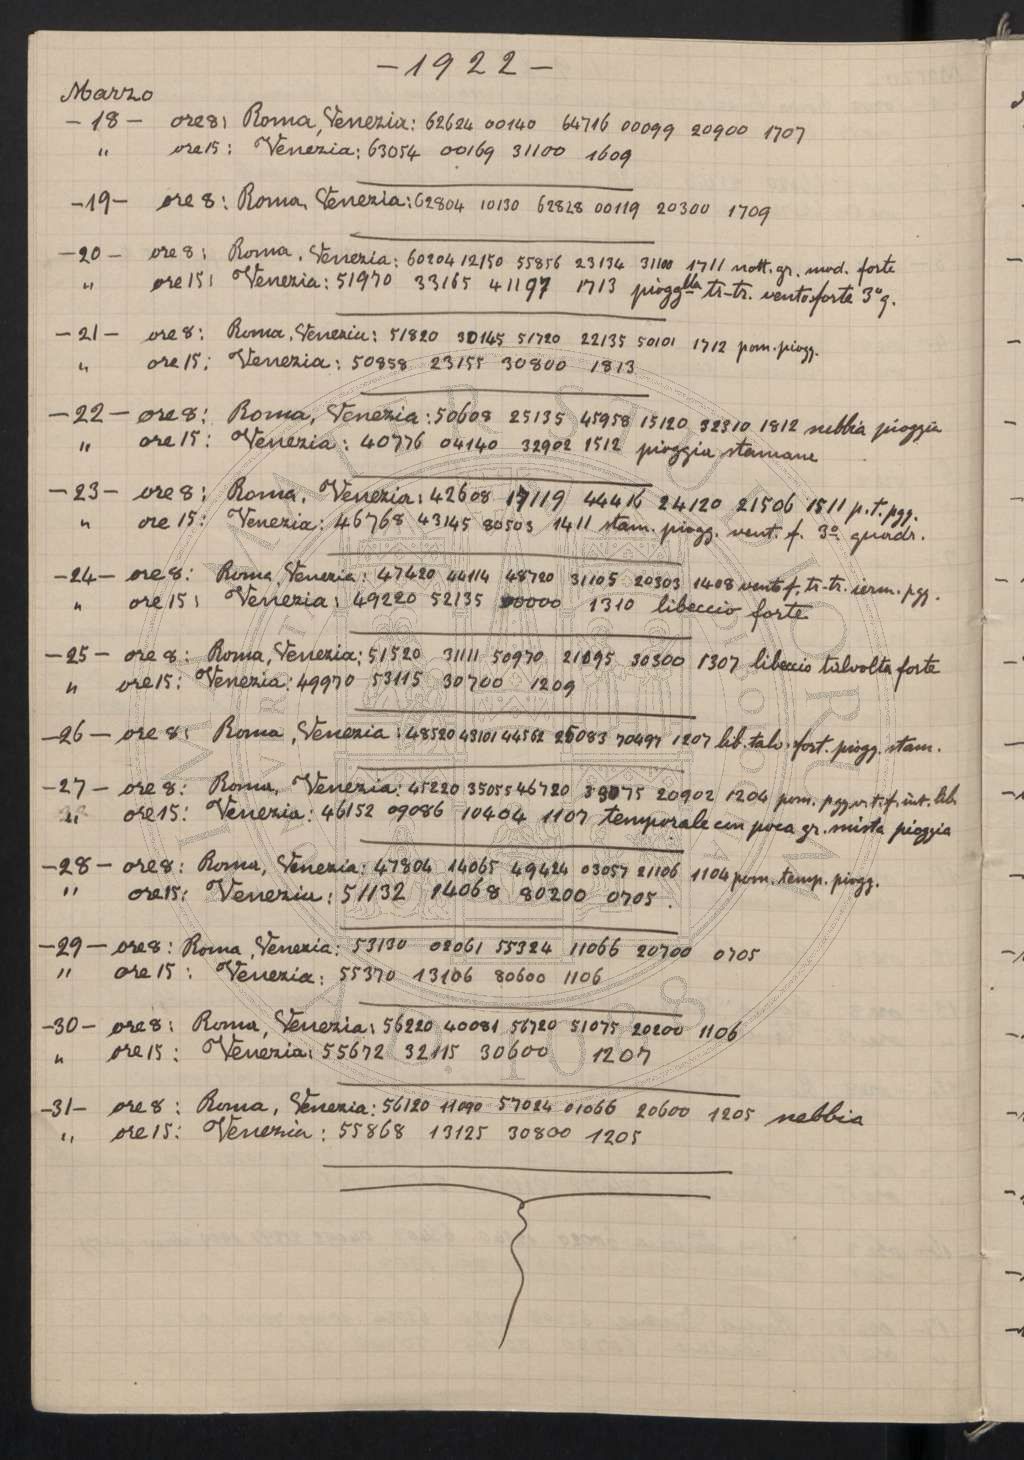 -1922-
Marzo
-18- ore 8: Roma, Venezia: 62624 00140 64716 00099 20900 1707
" ore 15: Venezia: 63054 00169 31100 1609
-19- ore 8: Roma, Venezia: 62804 10130 62828 00119 20300 1709
-20- ore 8: Roma, Venezia: 60204 12150 55856 23134 31100 1711 nott. gr. mod. forte
" ore 15: Venezia: 51970 33165 41197 1713 pioggʳˡˡᵃ tr-tr. vento forte 3º q.
-21- ore 8: Roma, Venezia: 51820 30145 51720 22135 50101 1712 pom. piogg.
" ore 15: Venezia: 50858 23155 30800 1813
-22- ore 8: Roma, Venezia: 50608 25135 45958 15120 32310 1812 nebbia pioggia
" ore 15: Venezia: 40776 04140 32902 1512 pioggia stamane
-23- ore 8: Roma, Venezia: 42608 17119 44416 24120 21506 1511 p. t. pgg.
" ore 15: Venezia: 46768 43145 80503 1411 stam. piogg. vent. f. 3º quadr.
-24- ore 8: Roma, Venezia: 47420 44114 48720 31105 20303 1408 vento f. tr-tr. ierm. pgg.
" ore 15: Venezia: 49220 52135 00000 1310 libeccio forte
-25- ore 8: Roma, Venezia: 51520 31111 50970 21095 30300 1307 libeccio talvolta forte
" ore 15: Venezia: 49970 53115 30700 1209
-26- ore 8: Roma, Venezia: 48520 43101 44562 25083 70497 1207 lib. talv. fort. piogg. stam.
-27- ore 8: Roma, Venezia: 45220 35055 46720 39075 20902 1204 pom. pgg. v. t. f. int. lib.
" ore 15: Venezia: 46152 09086 10404 1107 temporale con poca gr. mista pioggia
-28- ore 8: Roma, Venezia: 47804 14065 49424 03057 21106 1104 pom. temp. piogg.
" ore 15: Venezia: 51132 14068 80200 0705.
-29- ore 8: Roma, Venezia: 53130 02061 55324 11066 20700 0705
" ore 15: Venezia: 55370 13106 80600 1106
-30- ore 8: Roma, Venezia: 56220 40081 56720 51075 20200 1106
" ore 15: Venezia: 55672 32115 30600 1207
-31- ore 8: Roma, Venezia: 56120 11090 57024 01066 20600 1205 nebbia
" ore 15: Venezia: 55868 13125 30800 1205